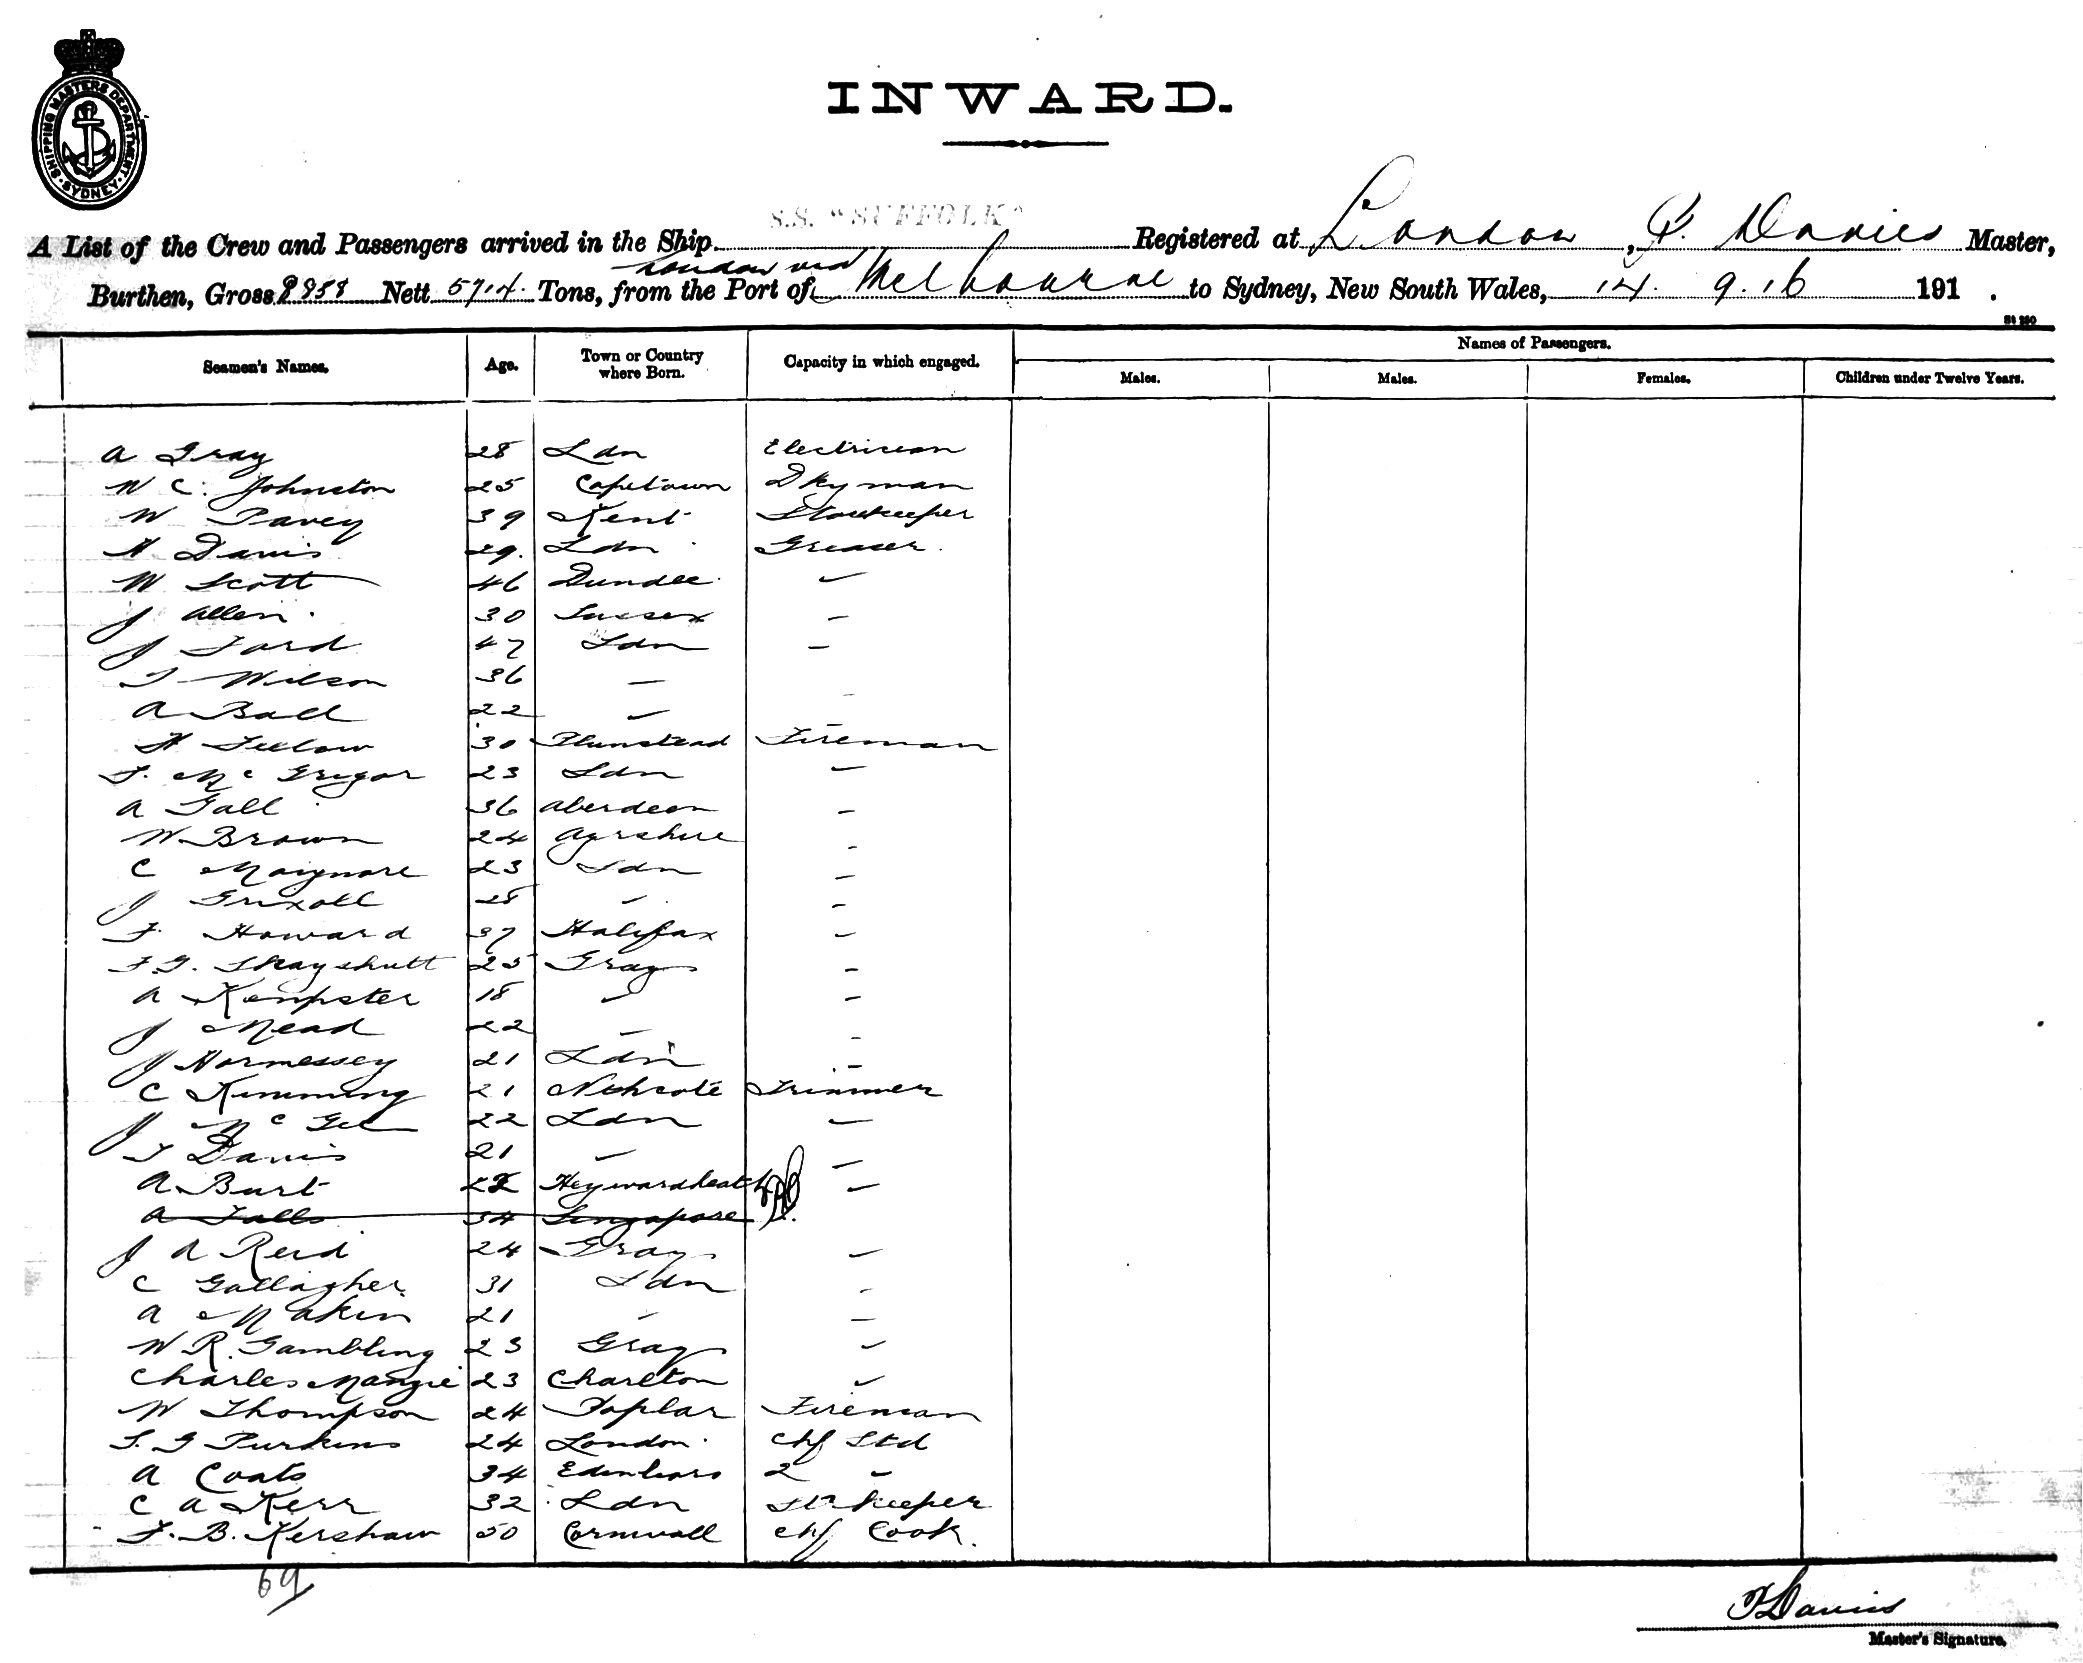 SHIPPING MASTERS DEPARTMENT · SYDNEY ·
INWARD.
S.S. "SUFFOLK"
A List of the Crew and Passengers arrived in the Ship Registered at London, Davies Master,
London via
Burthen, Gross Nett 5714. Tons, from the Port of Melbourne to Sydney, New South Wales, 14. 9. 16 191 .
St 260
Seamen's Names. Age. Town or Country where Born. Capacity in which engaged. Names of Passengers.
Males. Males. Females. Children under Twelve Years.
A Gray 28 Ldn Electrician
W C. Johnston 25 Capetown Dkyman
W Pavey 39 Kent Storekeeper
H Davis 29. Ldn Greaser.
W Scott 46 Dundee. "
J Allen. 30 Sussex –
J Ford 47 Ldn –
T Wilson 36 – –
A Ball 22 " –
H 30 Plumstead Fireman
F. McGregor 23 Ldn "
A Gall 36 Aberdeen –
W Brown 24 Ayrshire –
C 23 Ldn –
J 28 " –
F. Howard 37 Halifax –
F.G. 25 Grays –
A Kempster 18 " –
J Mead 22 – –
J Hormessey 21 Ldn –
C Kimming 21 Nthcote Trimmer
J McGee 22 Ldn –
T Davis 21 – –
A Burt 22 Heywardheath "
A Falls 34 Singapore
J A Reid 24 Grays "
C Gallagher 31 Ldn –
A Makin 21 " –
W R. Gambling 23 Grays "
Charles Mangie 23 Charlton "
W Thompson 24 Poplar Fireman
Purkins 24 London. Chf Std
A Coats 34 2 "
C A Kerr 32 Ldn Strkeeper
F. B. Kershaw 50 Cornwall Chf Cook.
69
Davies
Master's Signature.